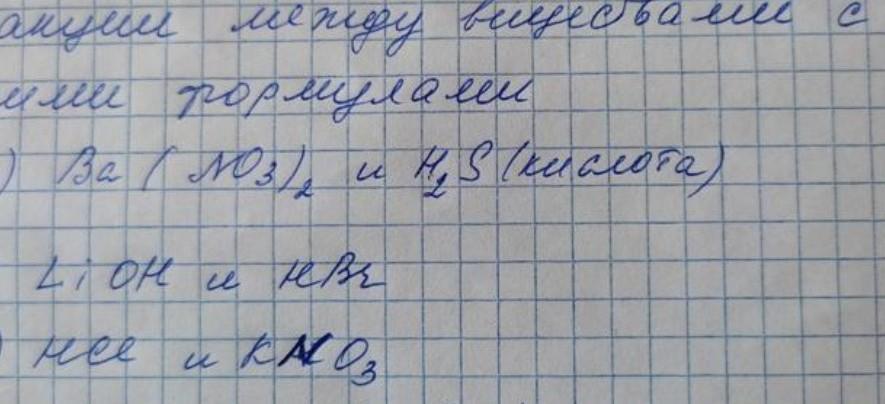 акции между веществами с
ими формулами
) Ba(NO3)2 и H2S (кислота)
LiOH и HBr
) HCl и KNO3